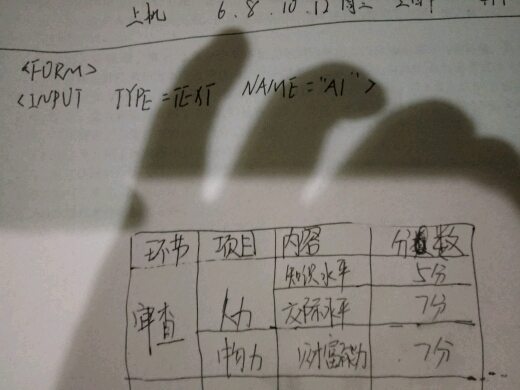 上机 6.8.10.12周
<FORM>
<INPUT TYPE=TEXT NAME="A1">
环节 项目 内容 分数
审查 人力 知识水平 5分
交际水平 7分
物力 财富能力 7分